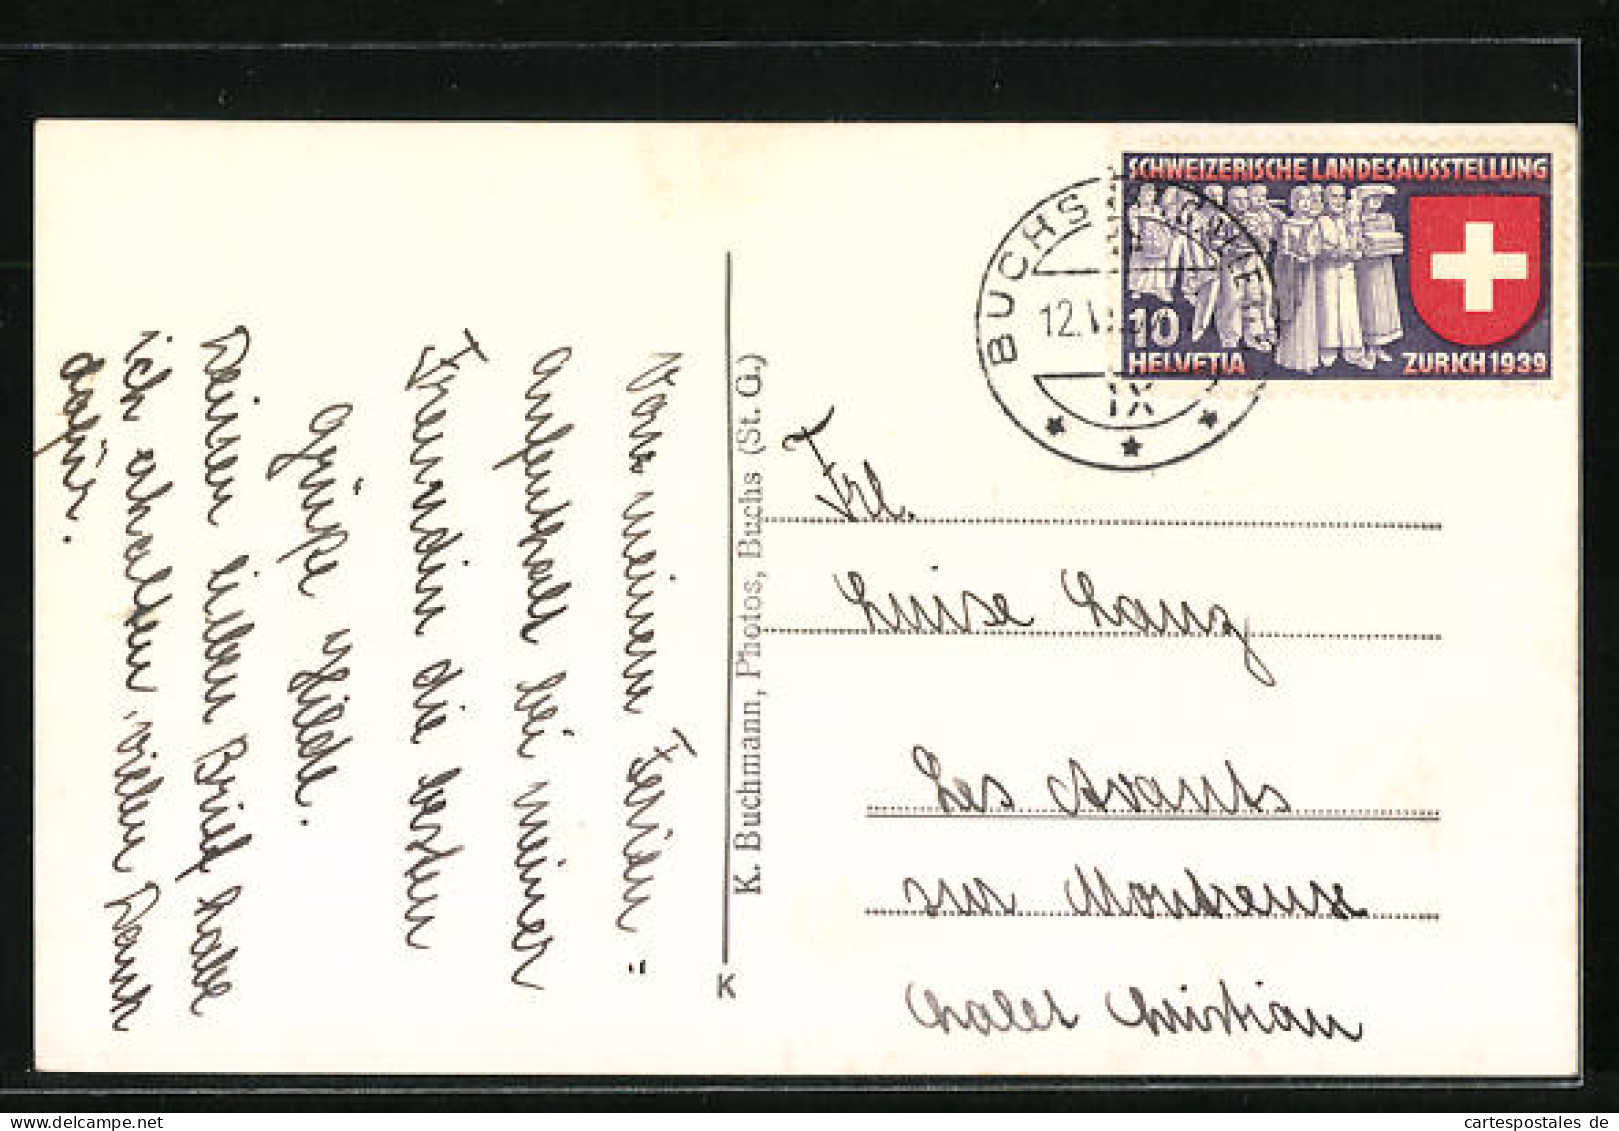 Von meinem Ferien=
aufenthalt bei meiner
Freundin die besten
Grüsse Hilde.
Deinen lieben Brief habe
ich erhalten, vielen Dank
dafür.
K. Buchmann, Photos, Buchs (St. G.)
K
SCHWEIZERISCHE LANDESAUSSTELLUNG
10
HELVETIA
ZÜRICH 1939
BUCHS
12.
IX
Frl.
Luise Lanz
Les Avants
sur Montreux
Chalet Christian
cartespostales de